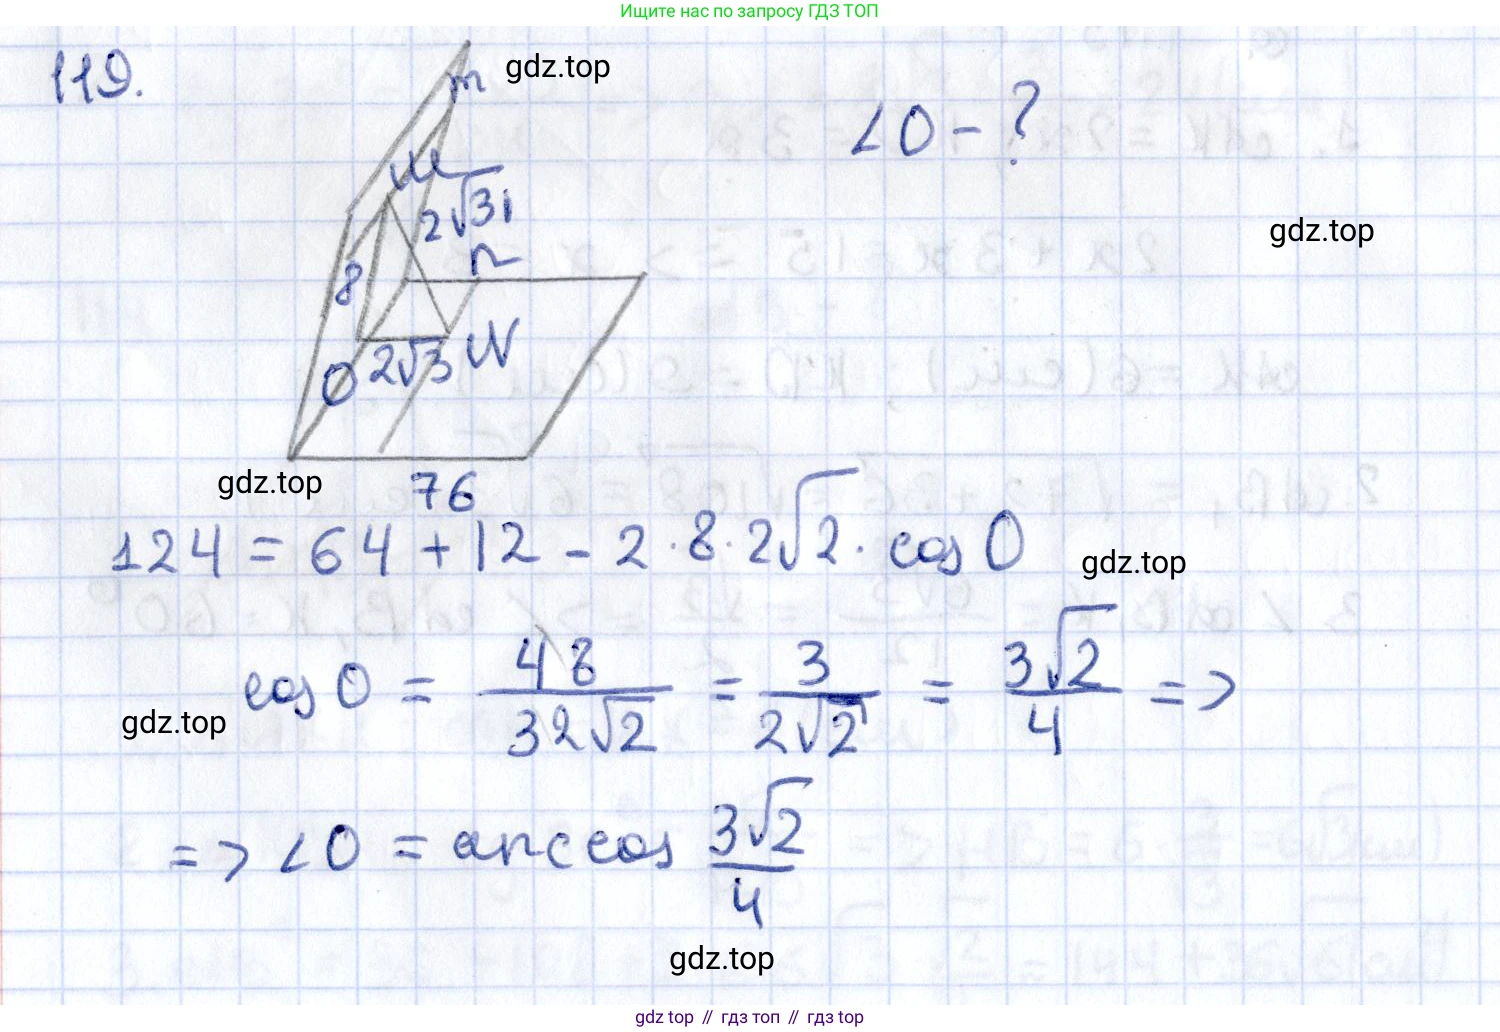 Ищите нас по запросу ГДЗ ТОП
119.
gdz.top
m
∠O - ?
M
2√31
gdz.top
n
8
O
2√3
N
gdz.top
76
124 = 64 + 12 - 2 · 8 · 2√2 · cos O
gdz.top
cos O = 48/(32√2) = 3/(2√2) = 3√2/4 =>
gdz.top
=> ∠O = arccos 3√2/4
gdz.top
gdz top // гдз топ // гдз top